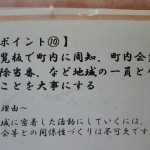 ポイント⑩】
覧板で町内に周知、町内会
除当番、など地域の一員と
ことを大事にする
理由～
域に密着した活動にしていくには、
会等との関係性づくりは不可欠です